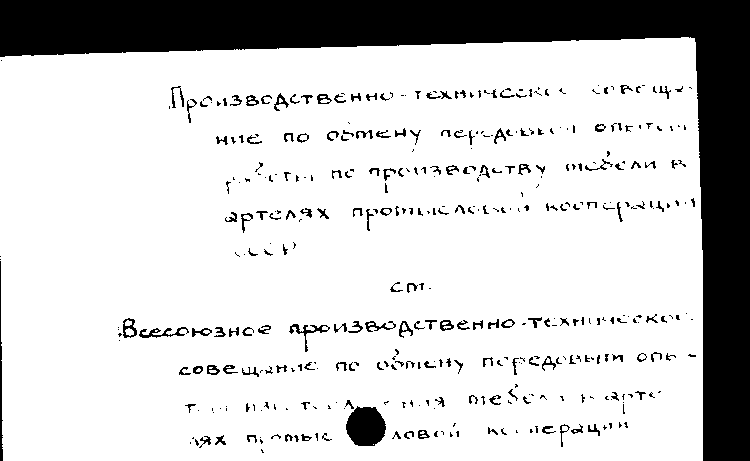 Производственно-техническое совеща-
ние по обмену передовым опытом
работы по производству мебели в
артелях промысловой кооперации
СССР
см.
Всесоюзное производственно-техническое
совещание по обмену передовым опы-
том мебели в арте
лях промысловой кооперации